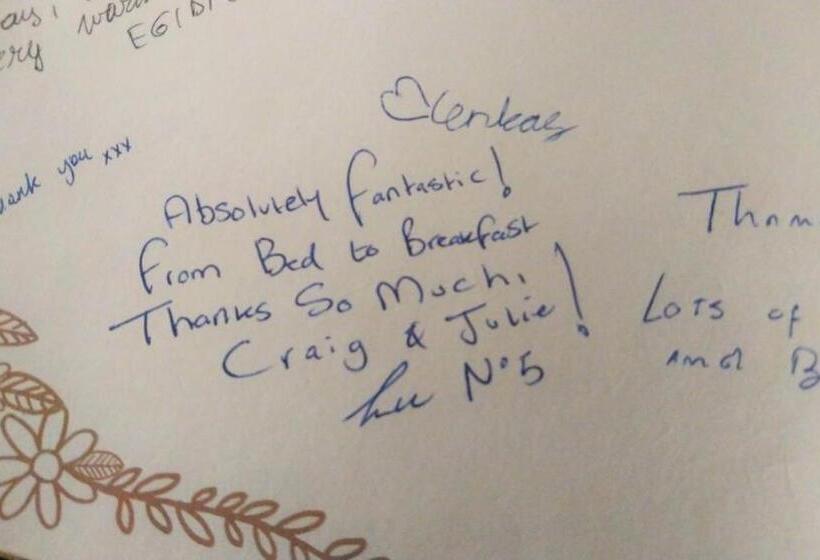 ery warm
EGIDI
thank you xxx
Absolutely fantastic!
From Bed to Breakfast
Thanks So Much,
Craig & Julie!
Nº5
Than
Lots of
and B